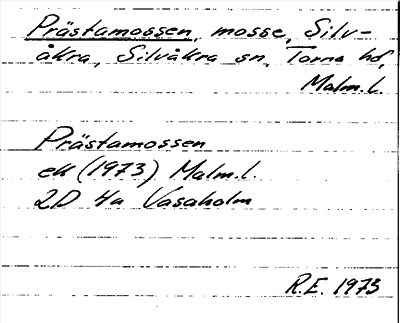 Prästamossen, mosse, Silv-
åkra, Silvåkra sn, Torna hd,
Malm.l.
Prästamossen
ek (1973) Malm.l.
2D 4a Vasaholm
R.E. 1973